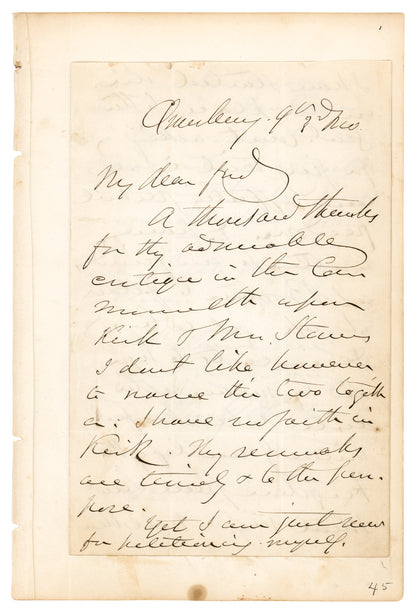 Amesbury 9th 3d Mo
My dear frd
A thousand thanks
for thy admirable
critique in the Com
monwealth upon
Kirk & Mrs. Stowe
I don't like however
to name the two togeth
er. I have no faith in
Kirk. Thy remarks
are timely & to the pur-
pose.
Yet I am just now
for petitioning myself.
45